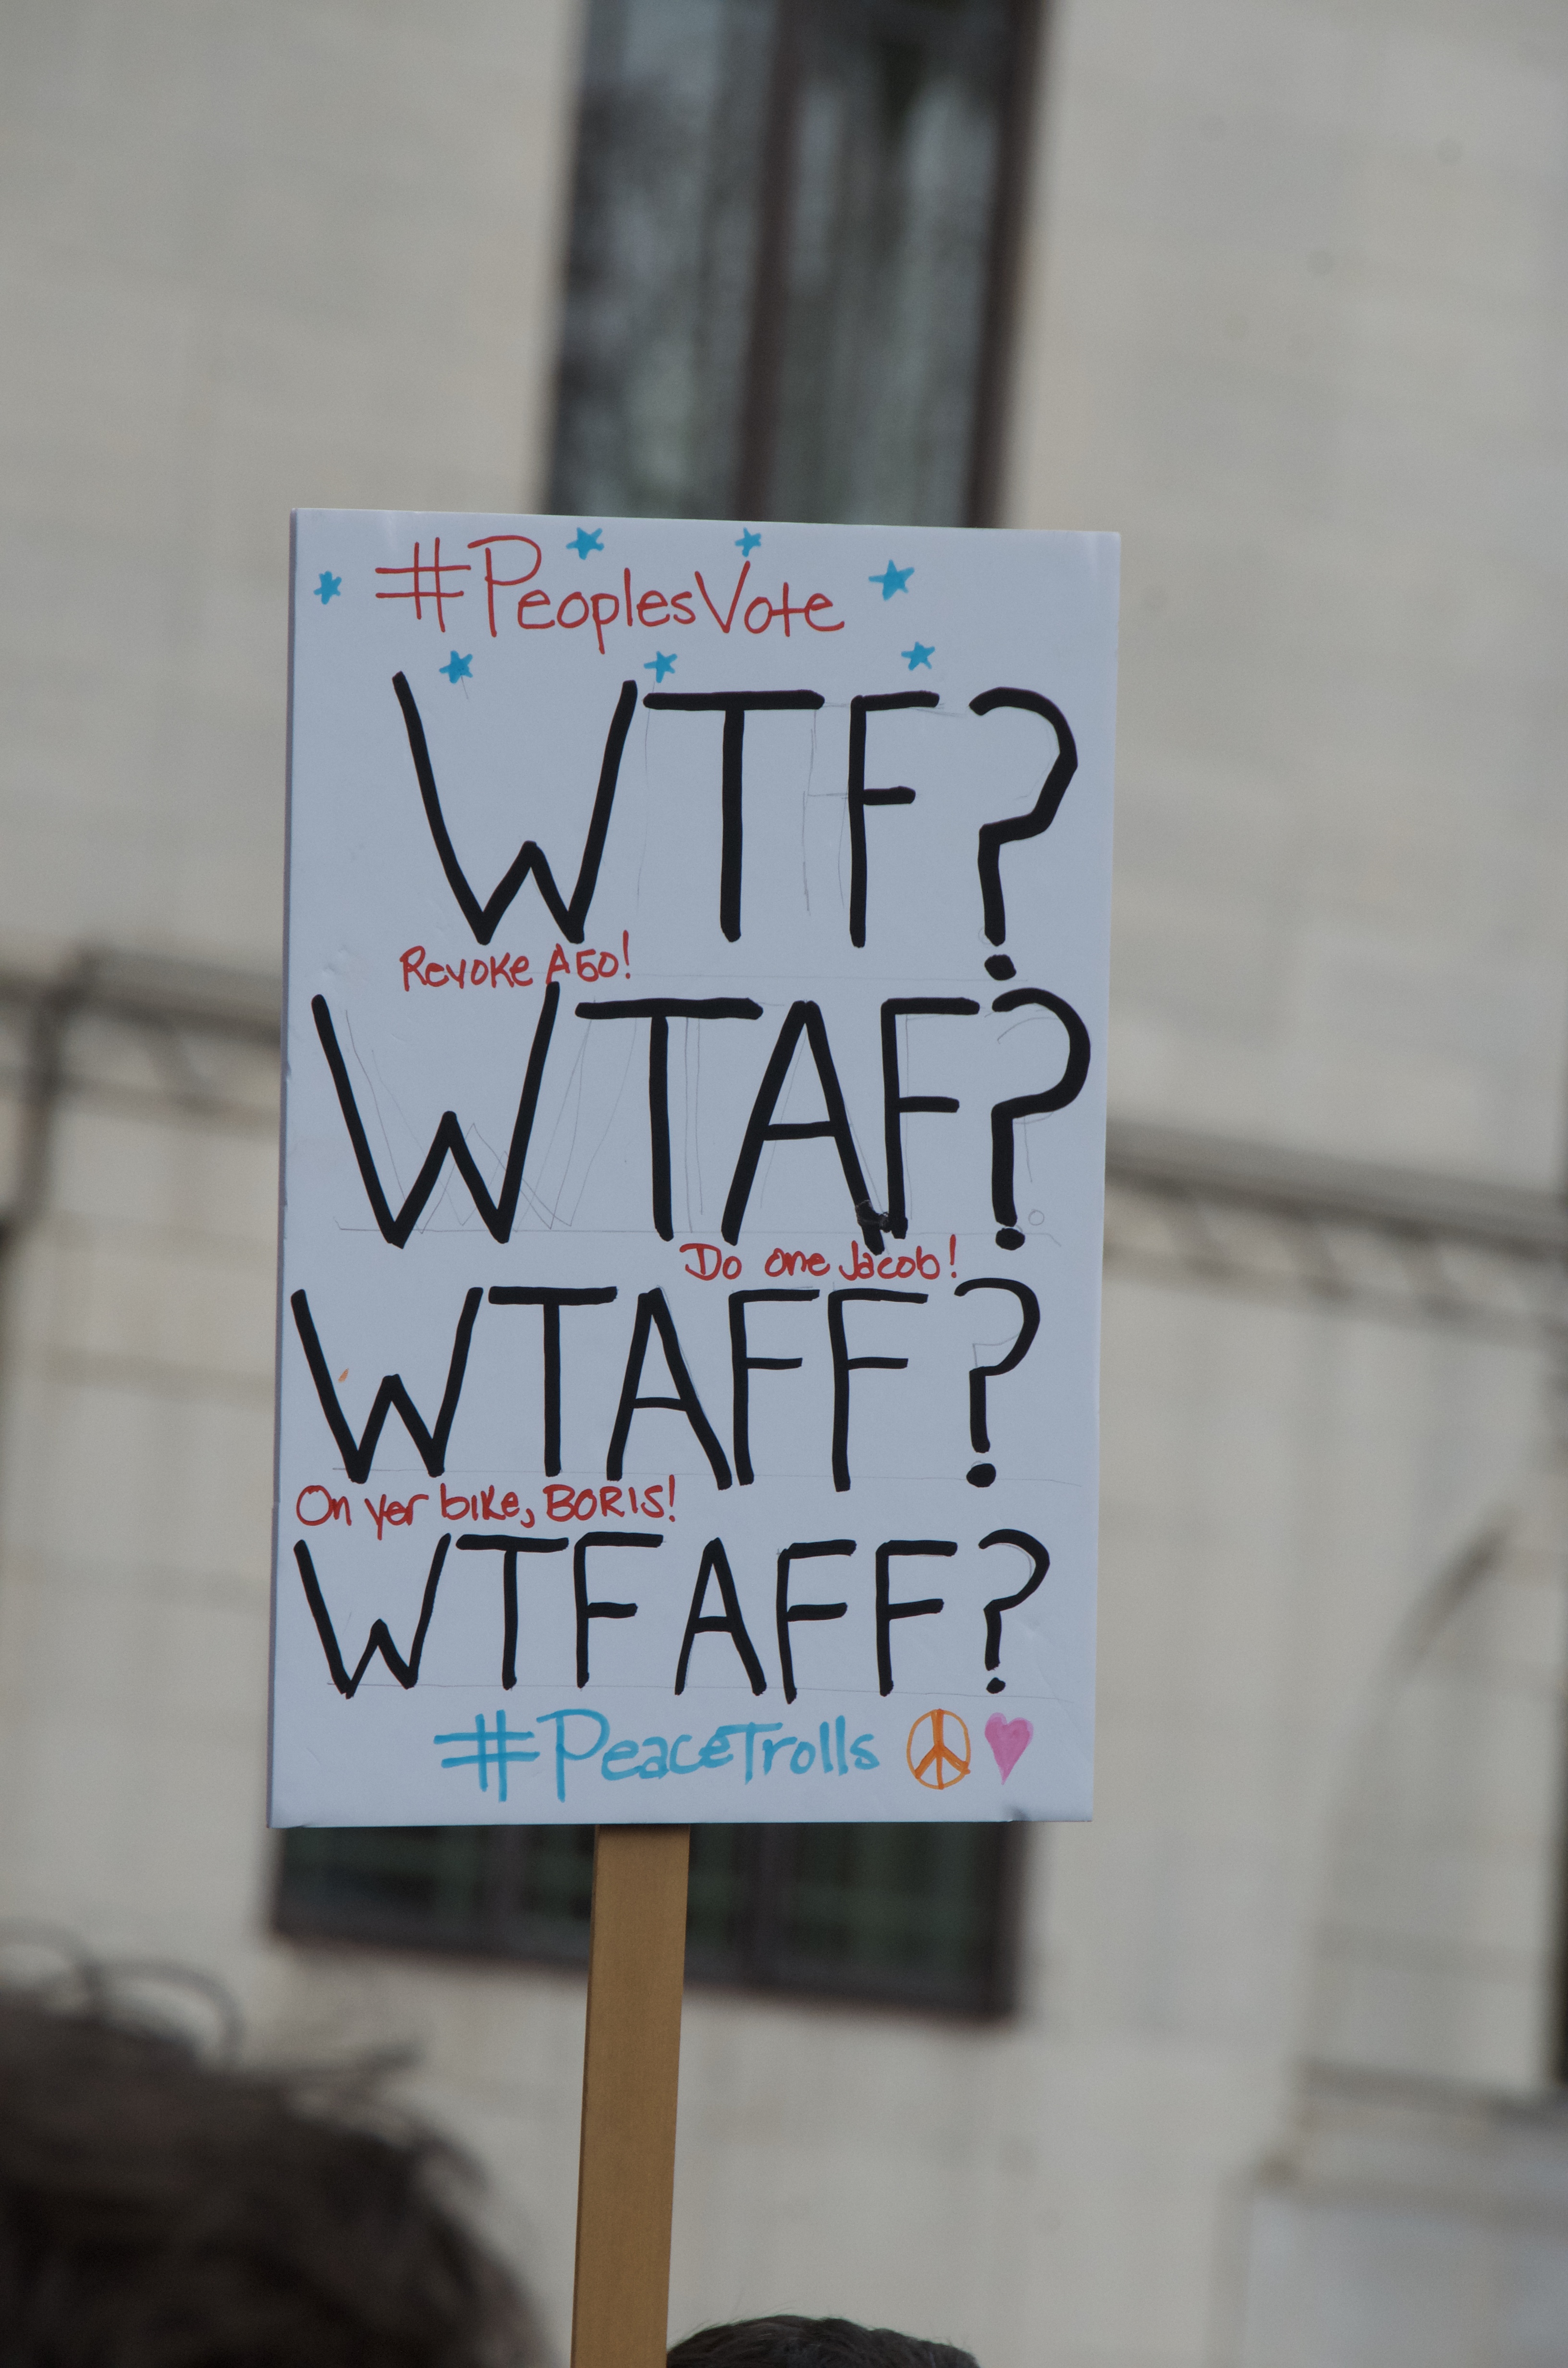 #PeoplesVote
WTF?
Revoke A50!
WTAF?
Do one Jacob!
WTAFF?
On yer bike, BORIS!
WTFAFF?
#PeaceTrolls